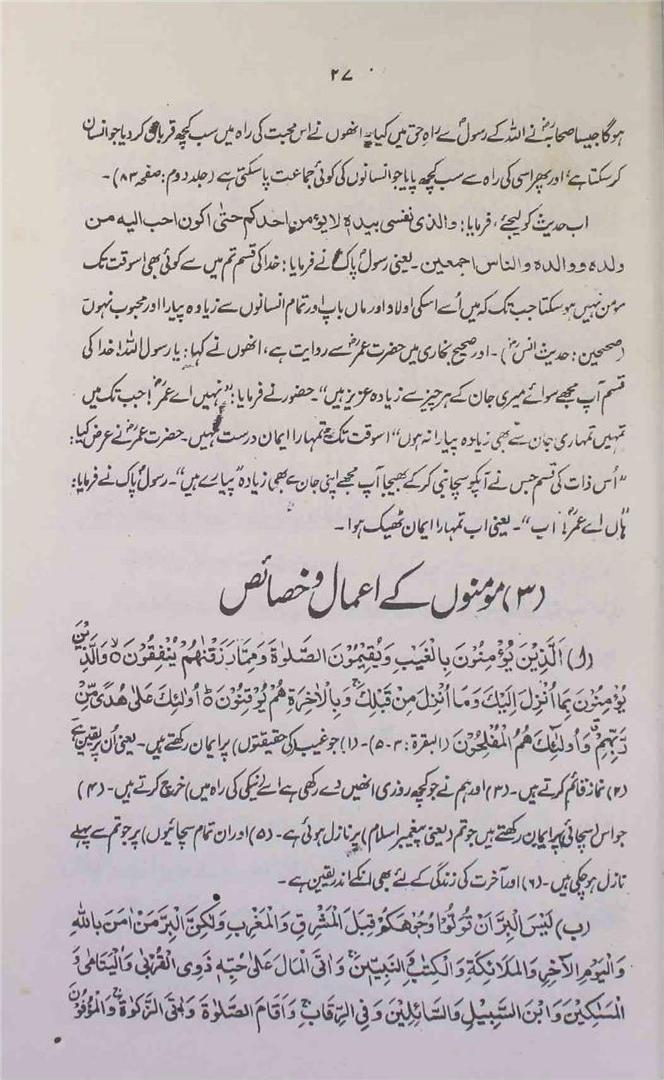 ۲۷
ہوگا جیسا صحابہؓ نے اللہ کے رسولؐ سے راہِ حق میں کیا۔ انھوں نے اس محبت کی راہ میں سب کچھ قربان کر دیا جو انسان
کر سکتا ہے، اور پھر اسی کی راہ سے سب کچھ پایا جو انسانوں کی کوئی جماعت پا سکتی ہے (جلد دوم: صفحہ ۸۳)۔
اب حدیث کو لیجئے، فرمایا: والذی نفسی بیدہ لا یؤمن احدکم حتیٰ اکون احب الیہ من
ولدہ ووالدہ والناس اجمعین۔ یعنی رسولؐ پاک نے فرمایا: خدا کی قسم تم میں سے کوئی بھی اسوقت تک
مومن نہیں ہو سکتا جب تک کہ میں اُسے اسکی اولاد اور ماں باپ اور تمام انسانوں سے زیادہ پیارا اور محبوب نہ ہوں
(صحیحین: حدیث انسؓ)۔ اور صحیح بخاری میں حضرت عمرؓ سے روایت ہے، انھوں نے کہا: یا رسول اللہ! خدا کی
قسم آپ مجھے سوائے میری جان کے ہر چیز سے زیادہ عزیز ہیں"۔ حضور نے فرمایا: "نہیں اے عمرؓ! جب تک میں
تمہیں تمہاری جان سے بھی زیادہ پیارا نہ ہوں" اسوقت تک تمہارا ایمان درست نہیں۔ حضرت عمرؓ نے عرض کیا:
"اُس ذات کی قسم جس نے آپکو سچا نبی کر کے بھیجا آپ مجھے اپنی جان سے بھی زیادہ پیارے ہیں"۔ رسولؐ پاک نے فرمایا:
"ہاں اے عمرؓ! اب"۔ یعنی اب تمہارا ایمان ٹھیک ہوا۔
(۳) مومنوں کے اعمال و خصائص
(ا) اَلَّذِیْنَ یُؤْمِنُوْنَ بِالْغَیْبِ وَیُقِیْمُوْنَ الصَّلٰوۃَ وَمِمَّا رَزَقْنٰھُمْ یُنْفِقُوْنَ ○ وَالَّذِیْنَ
یُؤْمِنُوْنَ بِمَا اُنْزِلَ اِلَیْکَ وَمَا اُنْزِلَ مِنْ قَبْلِکَ وَبِالْاٰخِرَۃِ ھُمْ یُوْقِنُوْنَ ○ اُولٰئِکَ عَلٰی ھُدًی مِّنْ
رَّبِّھِمْ وَاُولٰئِکَ ھُمُ الْمُفْلِحُوْنَ (البقرۃ: ۳-۵)۔ (۱) جو غیب (کی حقیقتوں) پر ایمان رکھتے ہیں۔ یعنی اُن پر یقین ہے
(۲) نماز قائم کرتے ہیں۔ (۳) اور ہم نے جو کچھ روزی انھیں دے رکھی ہے اسے (نیکی کی راہ میں) خرچ کرتے ہیں۔ (۴)
جو اس (سچائی) پر ایمان رکھتے ہیں جو تم (یعنی پیغمبر اسلام) پر نازل ہوئی ہے۔ (۵) اور ان تمام سچائیوں) پر جو تم سے پہلے
نازل ہو چکی ہیں۔ (۶) اور آخرت کی زندگی کے لئے بھی انکے اندر یقین ہے۔
(ب) لَیْسَ الْبِرَّ اَنْ تُوَلُّوْا وُجُوْھَکُمْ قِبَلَ الْمَشْرِقِ وَالْمَغْرِبِ وَلٰکِنَّ الْبِرَّ مَنْ اٰمَنَ بِاللّٰہِ
وَالْیَوْمِ الْاٰخِرِ وَالْمَلَائِکَۃِ وَالْکِتٰبِ وَالنَّبِیّٖنَ وَاٰتَی الْمَالَ عَلٰی حُبِّہٖ ذَوِی الْقُرْبٰی وَالْیَتَامٰی وَ
الْمَسٰکِیْنَ وَابْنَ السَّبِیْلِ وَالسَّائِلِیْنَ وَفِی الرِّقَابِ وَاَقَامَ الصَّلٰوۃَ وَاٰتَی الزَّکٰوۃَ وَالْمُوْفُوْنَ